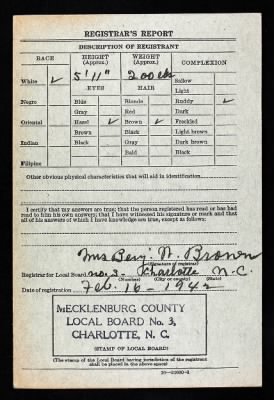 REGISTRAR'S REPORT
DESCRIPTION OF REGISTRANT
RACE HEIGHT (Approx.) WEIGHT (Approx.) COMPLEXION
White ✓ 5' 11" 200 lbs Sallow
EYES HAIR Light
Negro Blue Blonde Ruddy ✓
Gray Red Dark
Oriental Hazel ✓ Brown ✓ Freckled
Brown Black Light brown
Indian Black Gray Dark brown
Bald Black
Filipino
Other obvious physical characteristics that will aid in identification
I certify that my answers are true; that the person registered has read or has had
read to him his own answers; that I have witnessed his signature or mark and that
all of his answers of which I have knowledge are true, except as follows:
Mrs Benj. N. Brown
(Signature of registrar)
Registrar for Local Board no. 3 - Charlotte N. C.
(Number) (City or county) (State)
Date of registration Feb. 16 - 1942
MECKLENBURG COUNTY
LOCAL BOARD No. 3,
CHARLOTTE, N. C.
(STAMP OF LOCAL BOARD)
(The stamp of the Local Board having jurisdiction of the registrant
shall be placed in the above space)